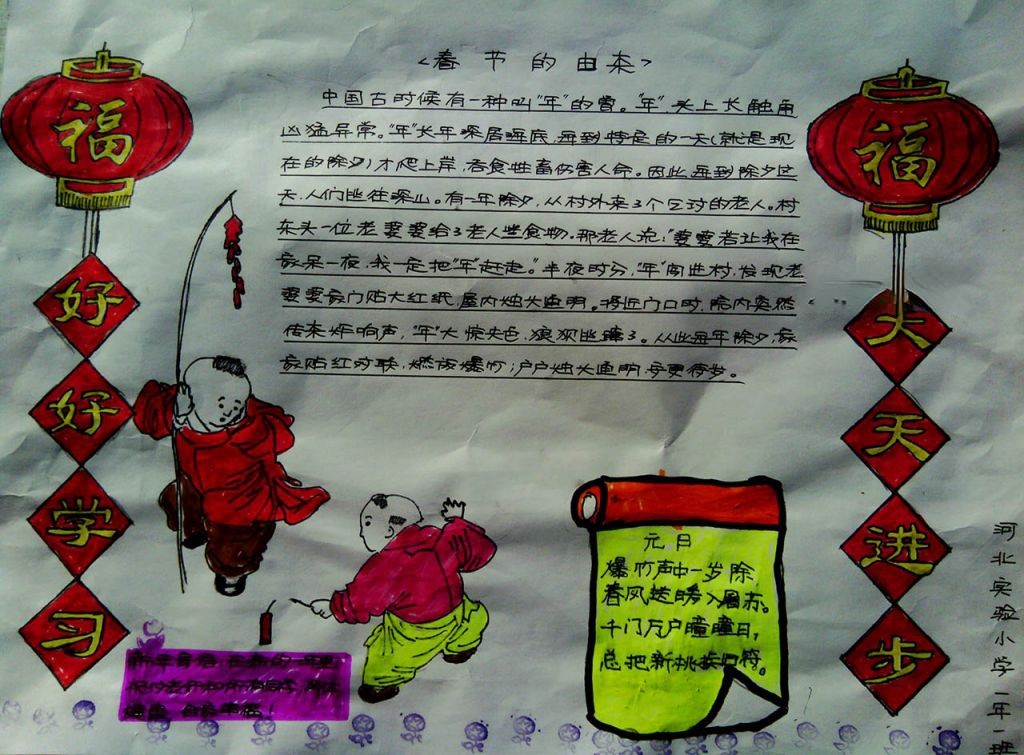 <春节的由来>
中国古时候有一种叫"年"的兽。"年"头上长触角
凶猛异常。"年"长年深居海底,每到特定的一天(就是现
在的除夕)才爬上岸,吞食牲畜伤害人命。因此,每到除夕这
天,人们逃往深山。有一年除夕,从村外来了个乞讨的老人。村
东头一位老婆婆给了老人些食物。那老人说:"婆婆若让我在
家呆一夜,我一定把"年"赶走。"半夜时分,"年"闯进村,发现老
婆婆家门贴大红纸,屋内烛火通明。将近门口时,院内突然
传来炸响声,"年"大惊失色,狼狈逃窜了。从此每年除夕,家
家贴红对联,燃放爆竹;户户烛火通明,守更待岁。
福
好
好
学
习
福
大
天
进
步
元日
爆竹声中一岁除
春风送暖入屠苏。
千门万户曈曈日,
总把新桃换旧符。
河北实验小学二年一班